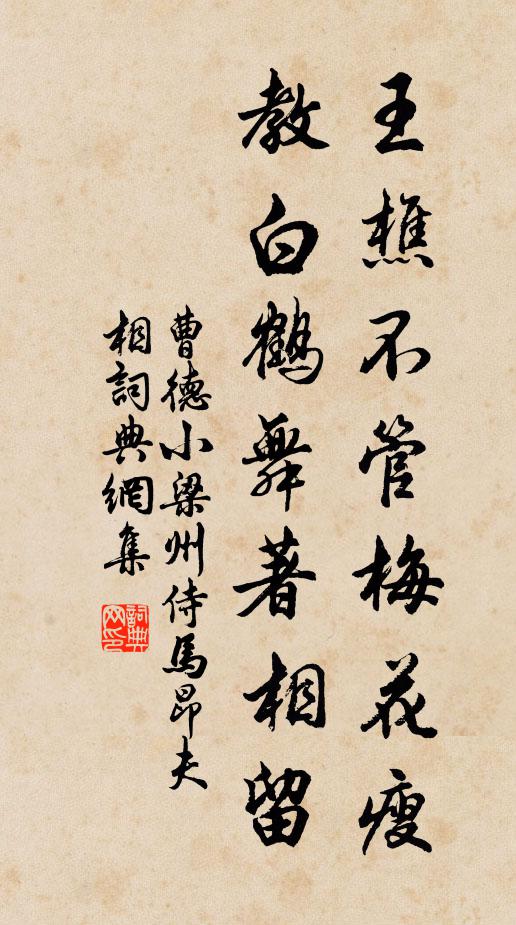 王樵不管梅花瘦
教白鶴舞著相留
曹德小梁州侍馬昂夫
相詞典網集
詞典
网印